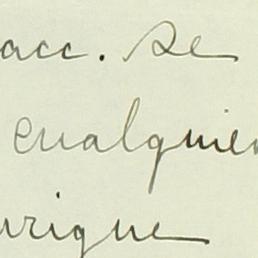 acc. Se
cualquier
urique